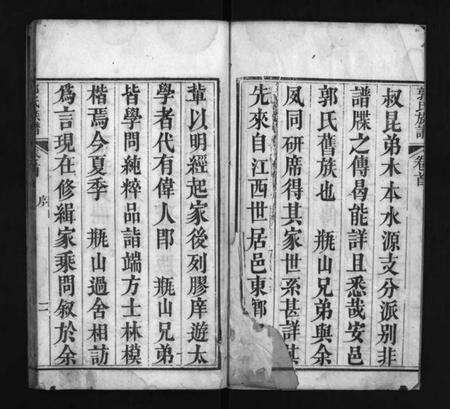 郭氏族譜 卷首
叔昆弟木本水源支分派別非
譜牒之傳曷能詳且悉哉安邑
郭氏舊族也 瓶山兄弟與余
夙同研席得其家世系甚詳其
先來自江西世居邑東
輩以明經起家後列膠庠遊太
學者代有偉人卽 瓶山兄弟
皆學問純粹品詣端方士林模
楷焉今夏季 瓶山過舍相訪
爲言現在修緝家乘問敘於余
序 二